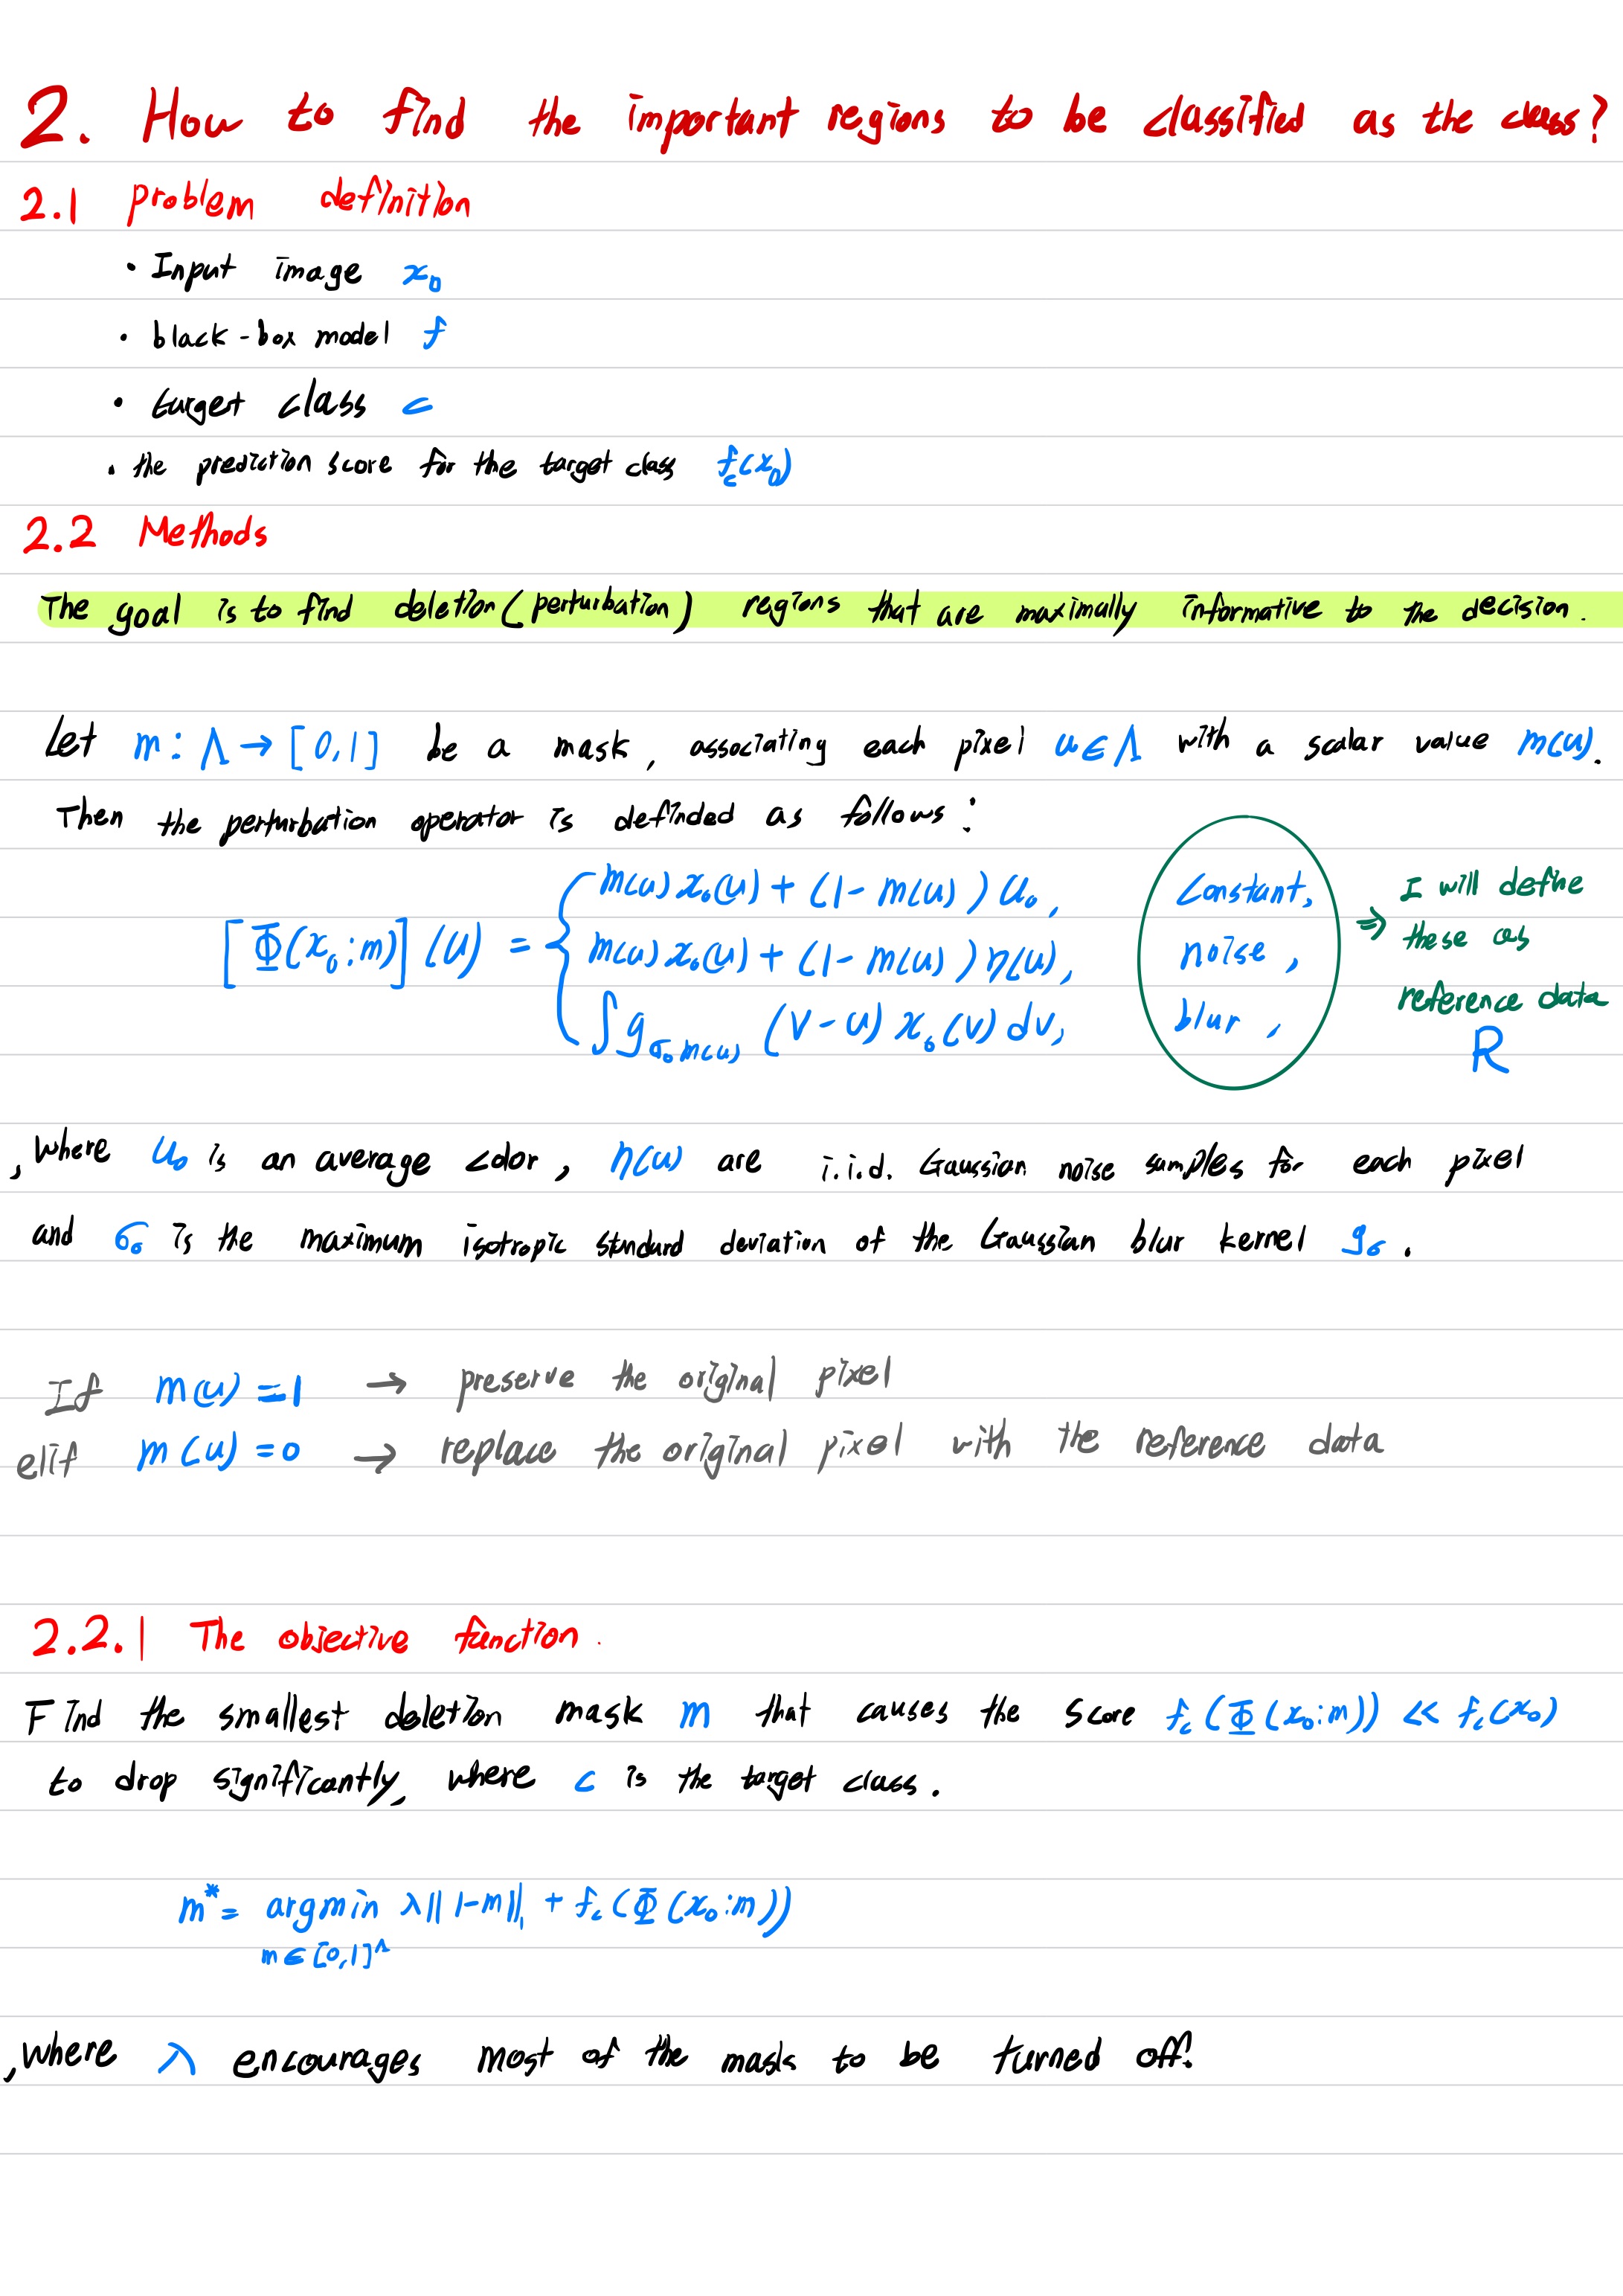 2. How to find the important regions to be classified as the class?
2.1 problem definition
• Input image x₀
• black-box model f
• target class c
• the prediction score for the target class f_c(x₀)
2.2 Methods
The goal is to find deletion(perturbation) regions that are maximally informative to the decision.
Let m : Λ → [0,1] be a mask, associating each pixel u ∈ Λ with a scalar value m(u).
Then the perturbation operator is definded as follows:
[Φ(x₀:m)](u) = { m(u)x₀(u) + (1-m(u))u₀, constant,
m(u)x₀(u) + (1-m(u))η(u), noise,
∫g_{σ₀m(u)}(v-u)x₀(v)dv, blur,
⇒ I will define
these as
reference data
R
,where u₀ is an average color, η(u) are i.i.d. Gaussian noise samples for each pixel
and σ₀ is the maximum isotropic standard deviation of the Gaussian blur kernel g_σ.
If m(u)=1 → preserve the original pixel
elif m(u)=0 → replace the original pixel with the reference data
2.2.1 The objective function.
Find the smallest deletion mask m that causes the score f_c(Φ(x₀:m)) << f_c(x₀)
to drop significantly, where c is the target class.
m* = argmin λ||1-m||₁ + f_c(Φ(x₀:m))
m∈[0,1]^Λ
,where λ encourages most of the mask to be turned off.